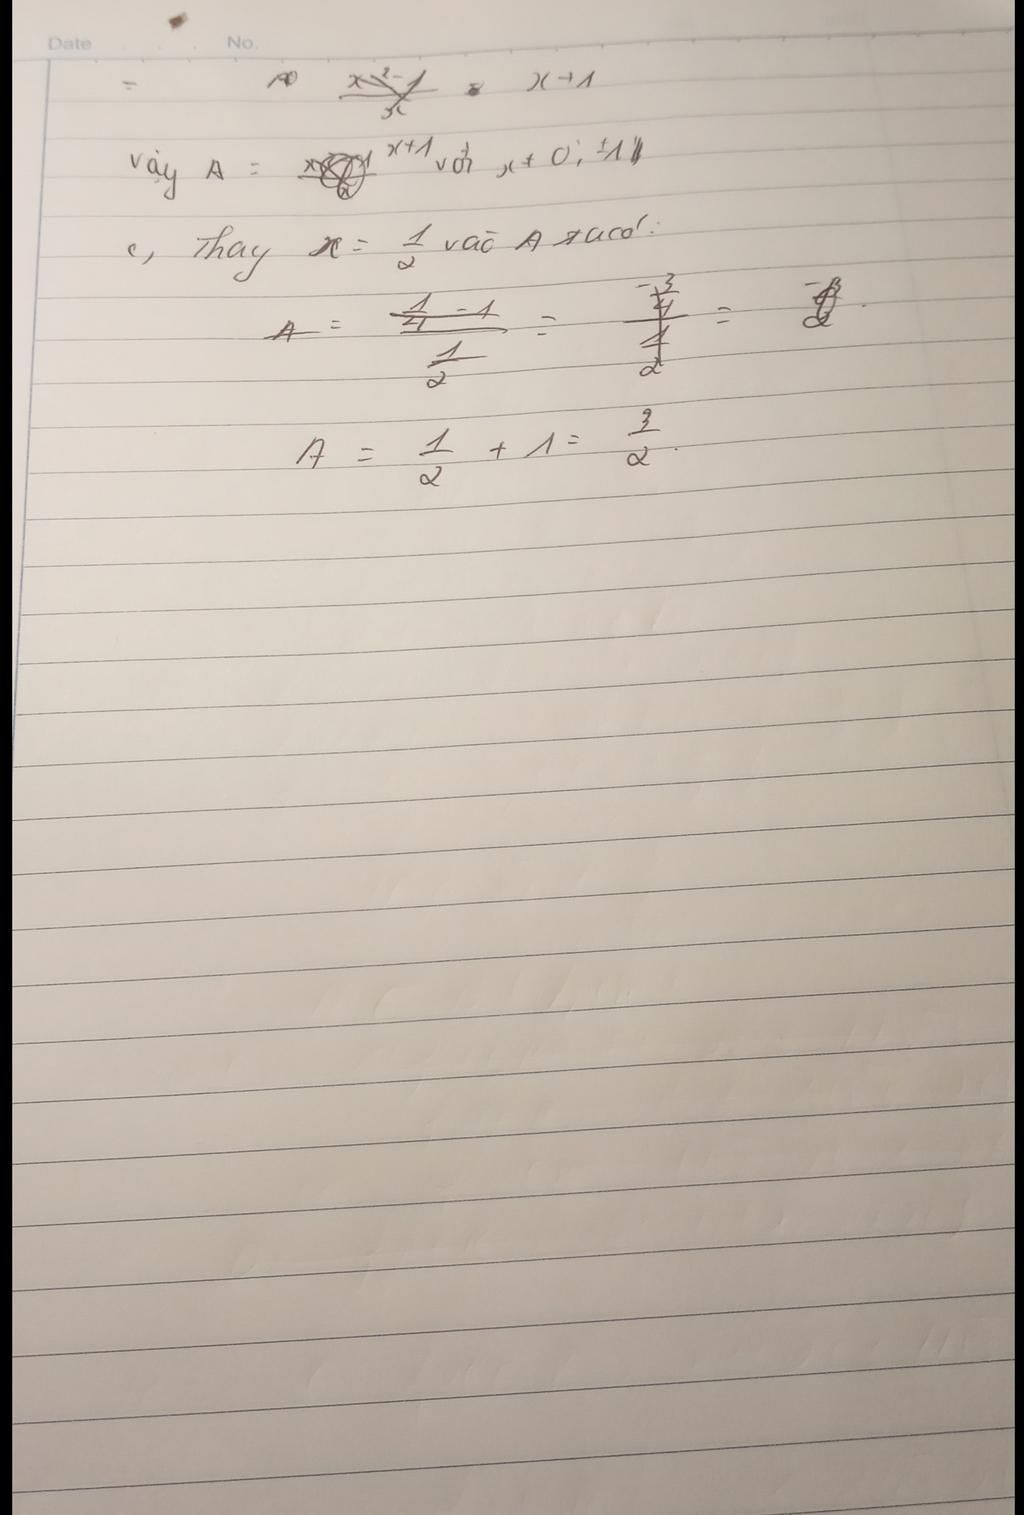 Date No.
= x²-1/x = x+1
Vậy A = x+1 với x ≠ 0; ±1
c, Thay x = 1/2 vào A ta có:
A = (1/4 - 1)/(1/2) = (-3/4)/(1/2) = -3/2.
A = 1/2 + 1 = 3/2.